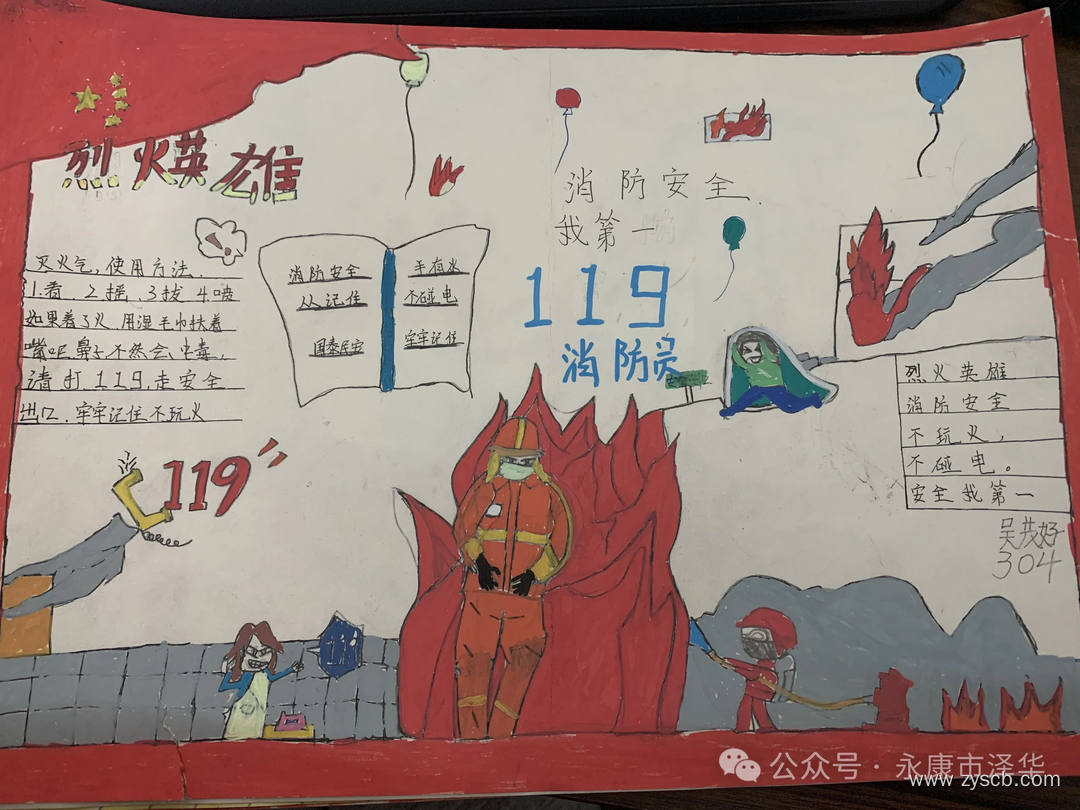 烈火英雄
灭火气，使用方法．
1.看．2摇．3拔 4.喷
如果着了火．用湿毛巾扶着
嘴吧鼻子不然会中毒，
请打119，走安全
出口．牢牢记住不玩火
119
消防安全
从记住
国泰民安
手有水
不碰电
牢牢记住
消防安全．
我第一
119
消防员
烈火英雄
消防安全
不玩火，
不碰电。
安全我第一
304
公众号·永康市泽华
www.zyscb.com